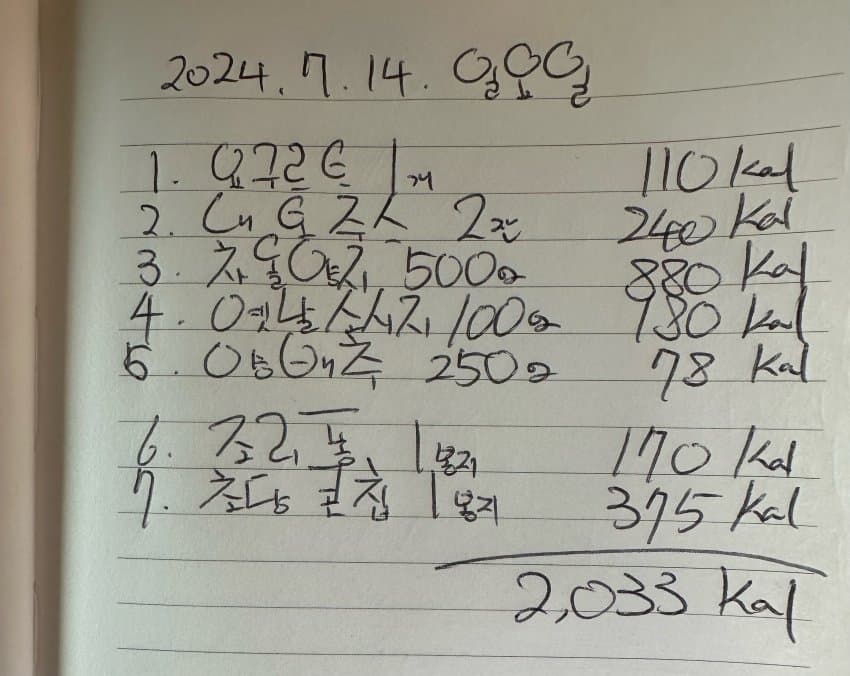 2024. 7. 14. 일요일
1. 요구르트 1개 110 Kal
2. 주스 2잔 240 Kal
3. 차돌양지 500g 880 Kal
4. 옛날 소시지 100g 180 Kal
5. 양배추 250g 78 Kal
6. 조리퐁 1봉지 170 Kal
7. 초당 콘칩 1봉지 375 Kal
2,033 Kal